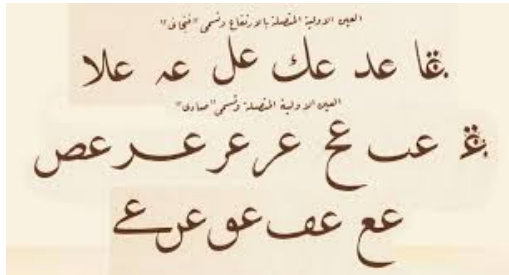 العين الاولية المتصلة بالارتفاع وتسمى "فنجانى"
عا عد عك عل عہ علا
العين الاولية المتصلة وتسمى "صادى"
عب عج عر عر عـــر عص
عع عف عق عں عے